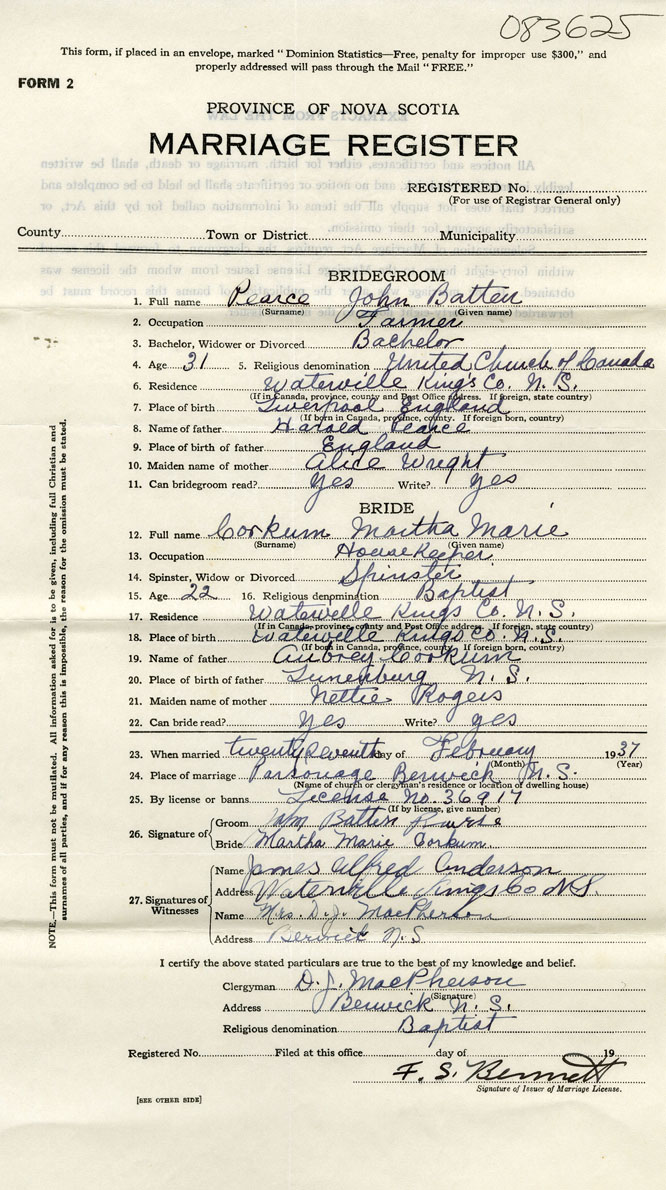 083625
This form, if placed in an envelope, marked "Dominion Statistics—Free, penalty for improper use $300," and
properly addressed will pass through the Mail "FREE."
FORM 2
PROVINCE OF NOVA SCOTIA
MARRIAGE REGISTER
REGISTERED No.
(For use of Registrar General only)
County Town or District Municipality
BRIDEGROOM
1. Full name Pearce John Batten
(Surname) (Given name)
2. Occupation Farmer
3. Bachelor, Widower or Divorced Bachelor
4. Age 31 5. Religious denomination United Church of Canada
6. Residence Waterville Kings Co. N.S.
(If in Canada, province, county and Post Office address. If foreign, state country)
7. Place of birth Liverpool England
(If born in Canada, province, county. If foreign born, country)
8. Name of father Harold Pearce
9. Place of birth of father England
10. Maiden name of mother Alice Wright
11. Can bridegroom read? Yes Write? Yes
BRIDE
12. Full name Corkum Martha Marie
(Surname) (Given name)
13. Occupation Housekeeper
14. Spinster, Widow or Divorced Spinster
15. Age 22 16. Religious denomination Baptist
17. Residence Waterville Kings Co. N.S.
(If in Canada, province, county and Post Office address. If foreign, state country)
18. Place of birth Waterville Kings Co. N.S.
(If born in Canada, province, county. If foreign born, country)
19. Name of father Aubrey Corkum
20. Place of birth of father Lunenburg N.S.
21. Maiden name of mother Nettie Rogers
22. Can bride read? Yes Write? yes
23. When married twenty seventh day of February 1937
(Month) (Year)
24. Place of marriage Parsonage Berwick N.S.
(Name of church or clergyman's residence or location of dwelling house)
25. By license or banns License No. 36917
(If by license, give number)
26. Signature of
Groom Batten
Bride Martha Marie Corkum
27. Signatures of Witnesses
Name James Alfred Anderson
Address Waterville Kings Co N.S.
Name Mrs. D.J. MacPherson
Address Berwick N.S
I certify the above stated particulars are true to the best of my knowledge and belief.
Clergyman D. J. MacPherson
(Signature)
Address Berwick N.S.
Religious denomination Baptist
Registered No. Filed at this office day of 19
F. S. Bennett
Signature of Issuer of Marriage License.
[SEE OTHER SIDE]
NOTE.—This form must not be mutilated. All information asked for is to be given, including full Christian and
surnames of all parties, and if for any reason this is impossible, the reason for the omission must be stated.